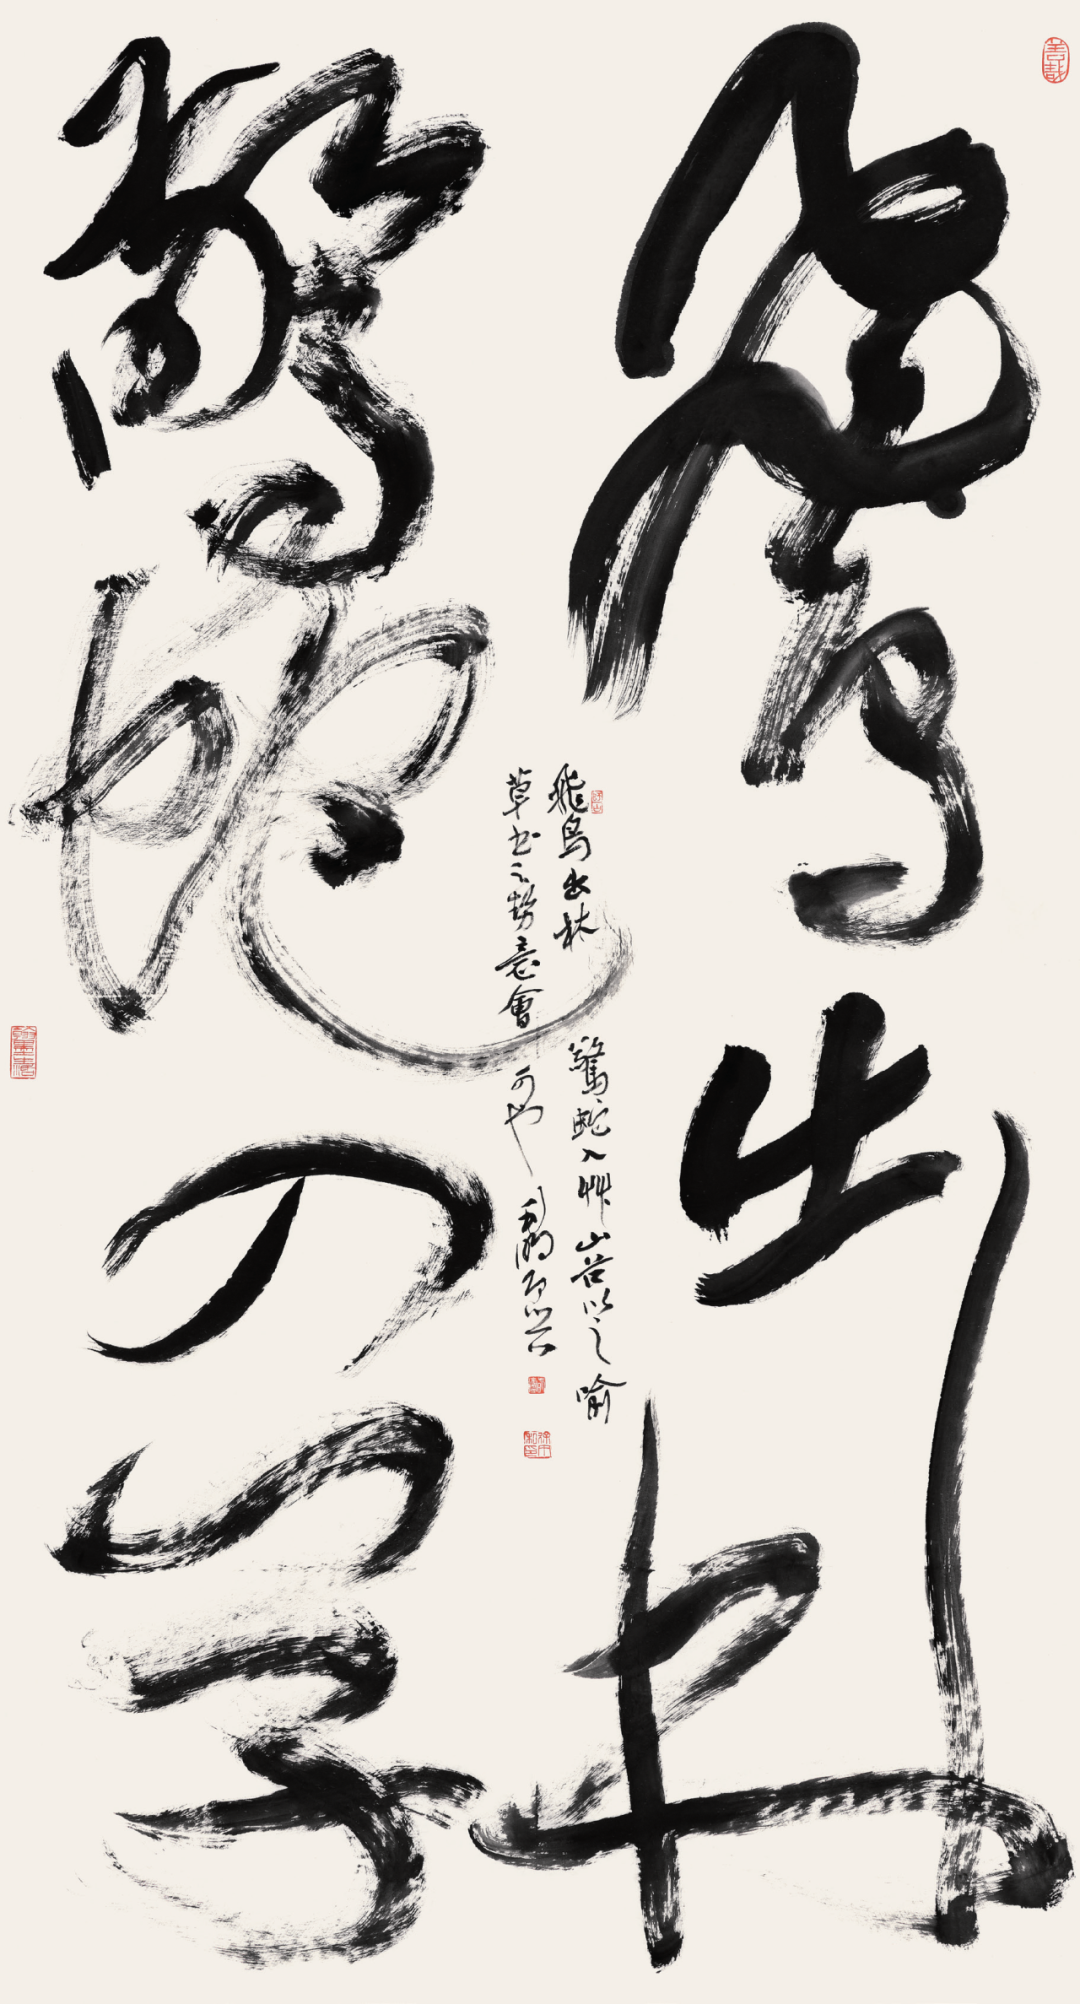 飛鳥出林
驚蛇入草
飛鳥出林驚蛇入艸山谷以之喻
草书之勢意會可也
善哉